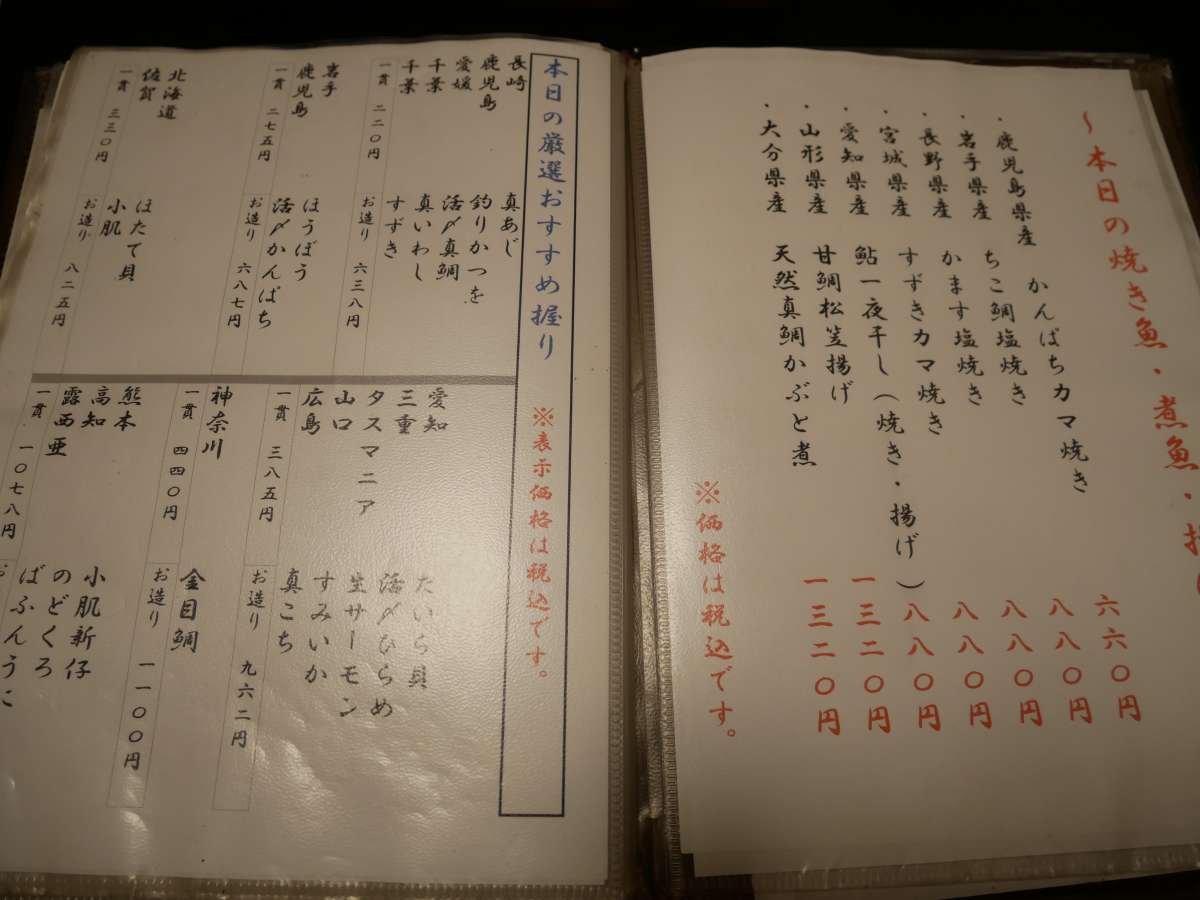 ～本日の焼き魚・煮魚・
・鹿児島県産 かんぱちカマ焼き 六六〇円
・岩手県産 ちこ鯛塩焼き 八八〇円
・長野県産 かます塩焼き 八八〇円
・宮城県産 すずきカマ焼き 八八〇円
・愛知県産 鮎一夜干し（焼き・揚げ） 八八〇円
・山形県産 甘鯛松笠揚げ 一三二〇円
・大分県産 天然真鯛かぶと煮 一三二〇円
※価格は税込です。
本日の厳選おすすめ握り ※表示価格は税込です。
長崎 真あじ
鹿児島 釣りかつを
愛媛 活〆真鯛
千葉 真いわし
千葉 すずき
一貫 二二〇円 お造り 六三八円
岩手 ほうぼう
鹿児島 活〆かんぱち
一貫 二七五円 お造り 六八七円
北海道 ほたて貝
佐賀 小肌
一貫 三三〇円 お造り 八二五円
愛知 たいら貝
三重 活〆ひらめ
タスマニア 生サーモン
山口 すみいか
広島 真こち
一貫 三八五円 お造り 九六二円
神奈川 金目鯛
一貫 四四〇円 お造り 一一〇〇円
熊本 小肌新仔
高知 のどくろ
露西亜 ばふんうに
一貫 一〇七八円